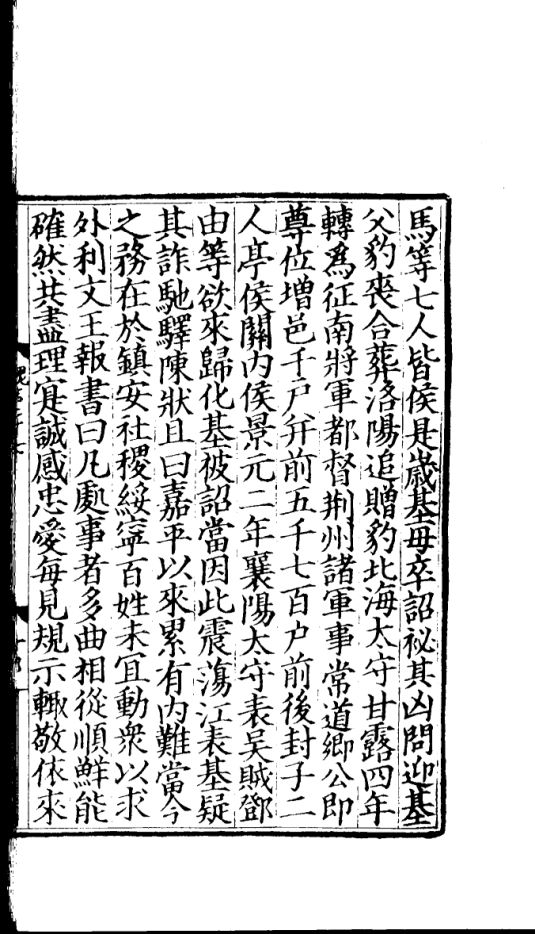 馬等七人皆侯是歲基母卒詔祕其凶問迎基
父豹喪合葬洛陽追贈豹北海太守甘露四年
轉爲征南將軍都督荆州諸軍事常道鄉公即
尊位增邑千戶并前五千七百户前後封子二
人亭侯關內侯景元二年襄陽太守表吳賊鄧
由等欲來歸化基被詔當因此震蕩江表基疑
其詐馳驛陳狀且曰嘉平以來累有內難當今
之務在於鎮安社稷綏寧百姓未宜動衆以求
外利文王報書曰凡處事者多曲相從順鮮能
確然共盡理寔誠感忠愛每見規示輙敬依來